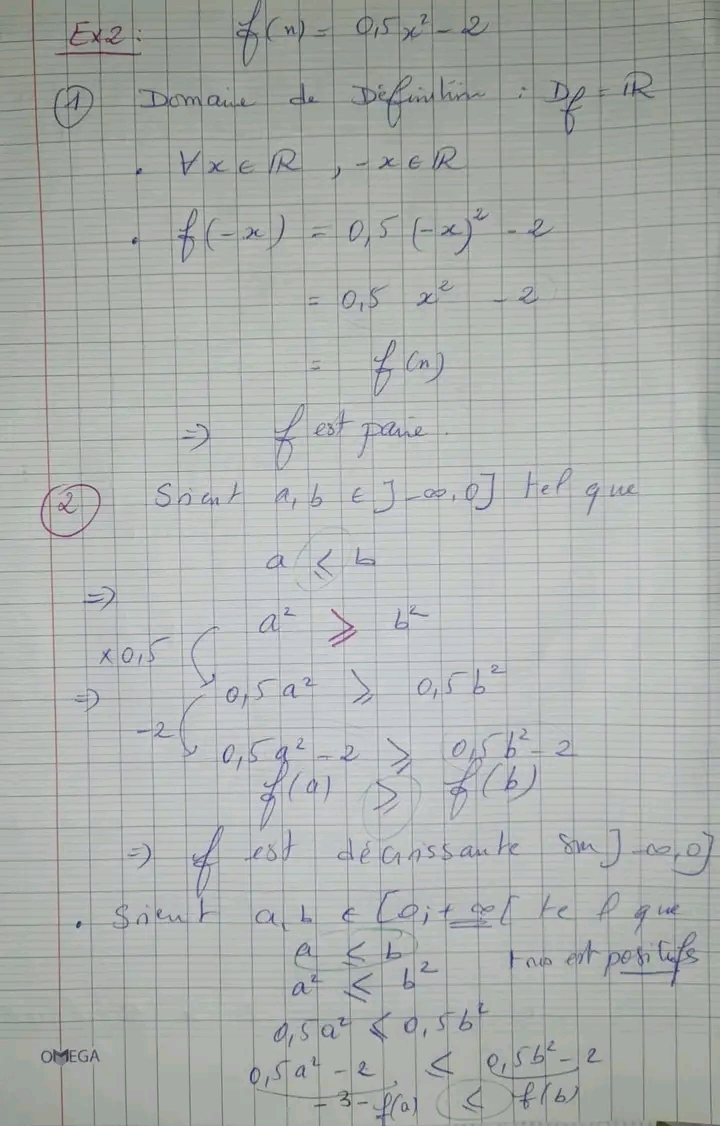 Ex2: f(x) = 0,5x² - 2
① Domaine de Définition : Df = ℝ
. ∀x ∈ ℝ, -x ∈ ℝ
. f(-x) = 0,5 (-x)² - 2
= 0,5 x² - 2
= f(x)
⇒ f est paire.
② Soient a, b ∈ ]-∞, 0] tel que
a ≤ b
⇒
a² ≥ b²
×0,5
⇒ 0,5a² ≥ 0,5b²
-2
0,5a² - 2 ≥ 0,5b² - 2
f(a) ≥ f(b)
⇒ f est décroissante sur ]-∞, 0]
. Soient a, b ∈ [0; +∞[ tel que
a ≤ b est positifs
a² ≤ b²
0,5a² ≤ 0,5b²
OMEGA
0,5a² - 2 ≤ 0,5b² - 2
- 3 - f(a) ≤ f(b)